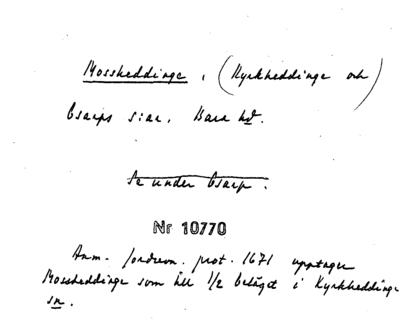 Mossheddinge, (Kyrkheddinge och)
Esarps s:ar, Bara hd.
Se under Esarp.
Nr 10770
Anm. Jordrevn. prot. 1671 upptager
Mossheddinge som till 1/2 beläget i Kyrkheddinge
sn.